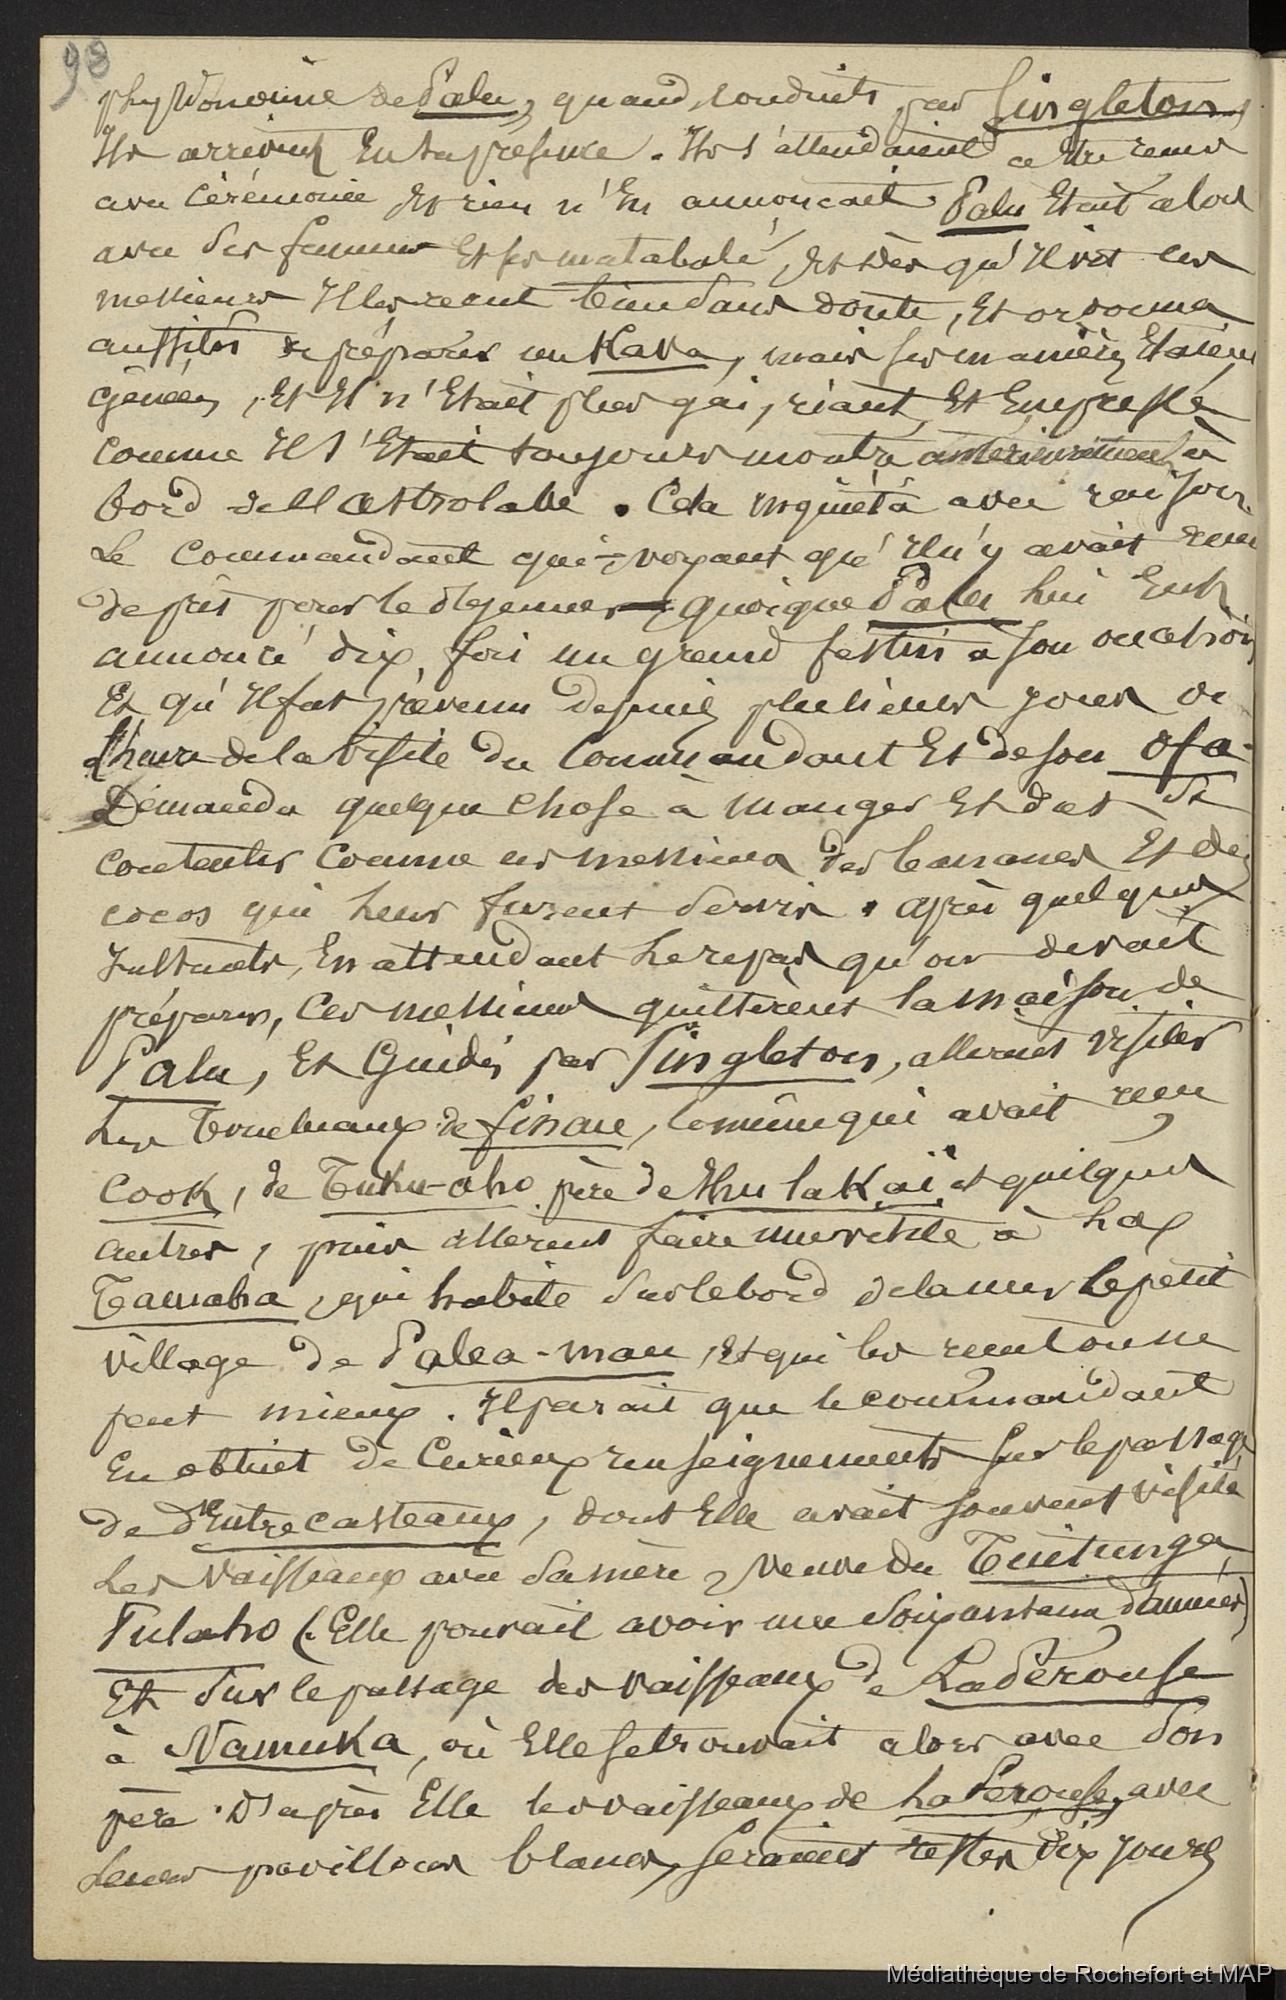 98
physionomie de Palu, quand, conduits par Singleton,
Ils arrivent En sa présence. Ils s'attendaient a etre recus
avec Cérémonie Et rien n'En annoncait. Palu Etait alors
avec ses femmes Et ses matabolé, Et dès qu'Il vit ces
messieurs Il les recut bien sans doute, Et ordonna
aussitôt de préparer un Kava, mais ses manières Etaient
gênées, Et Il n'Etait plus gai, riant, Et Empressé
comme Il s'Etait toujours montré antérieurement à
bord de l'astrolabe. Cela inquiéta avec raison
Le Commandant qui voyant qu'Il n'y avait rien
de prêt pour le déjeuner quoique Palu lui Eut
annoncé dix fois un grand festin à son occasion
Et qu'Il fut prévenu depuis plusieurs jours de
l'heure de la Visite du Commandant Et de son Ofa
Demanda quelque chose à manger Et dut se
contenter comme ces messieurs des bananes Et des
cocos qui leur furent servis. après quelques
Instants, En attendant le repas qu'on devait
préparer, Ces messieurs quittèrent la maison de
Palu, Et Guidés par Singleton, allerent visiter
Les Tombeaux de finau, le même qui avait recu
Cook, de Tuku-aho père de thulakaï et quelques
autres, puis allerent faire une visite à La
Tamaha, qui habite sur le bord de la mer le petit
village de Palea-mau, Et qui les recut on ne
peut mieux. Il parait que le commandant
En obtint de Curieux renseignements sur le passage
de d'Entrecasteaux, dont Elle avait souvent visité
Les Vaisseaux avec sa mère, Veuve du Tuitunga
Pulaho (Elle pouvait avoir une soixantaine d'années)
Et sur le passage des vaisseaux de LaPérouse
à Namuka, où Elle se trouvait alors avec son
père. D'après Elle les vaisseaux de LaPerouse, avec
Leurs pavillons blancs, seraient restés dix jours
Médiathèque de Rochefort et MAP